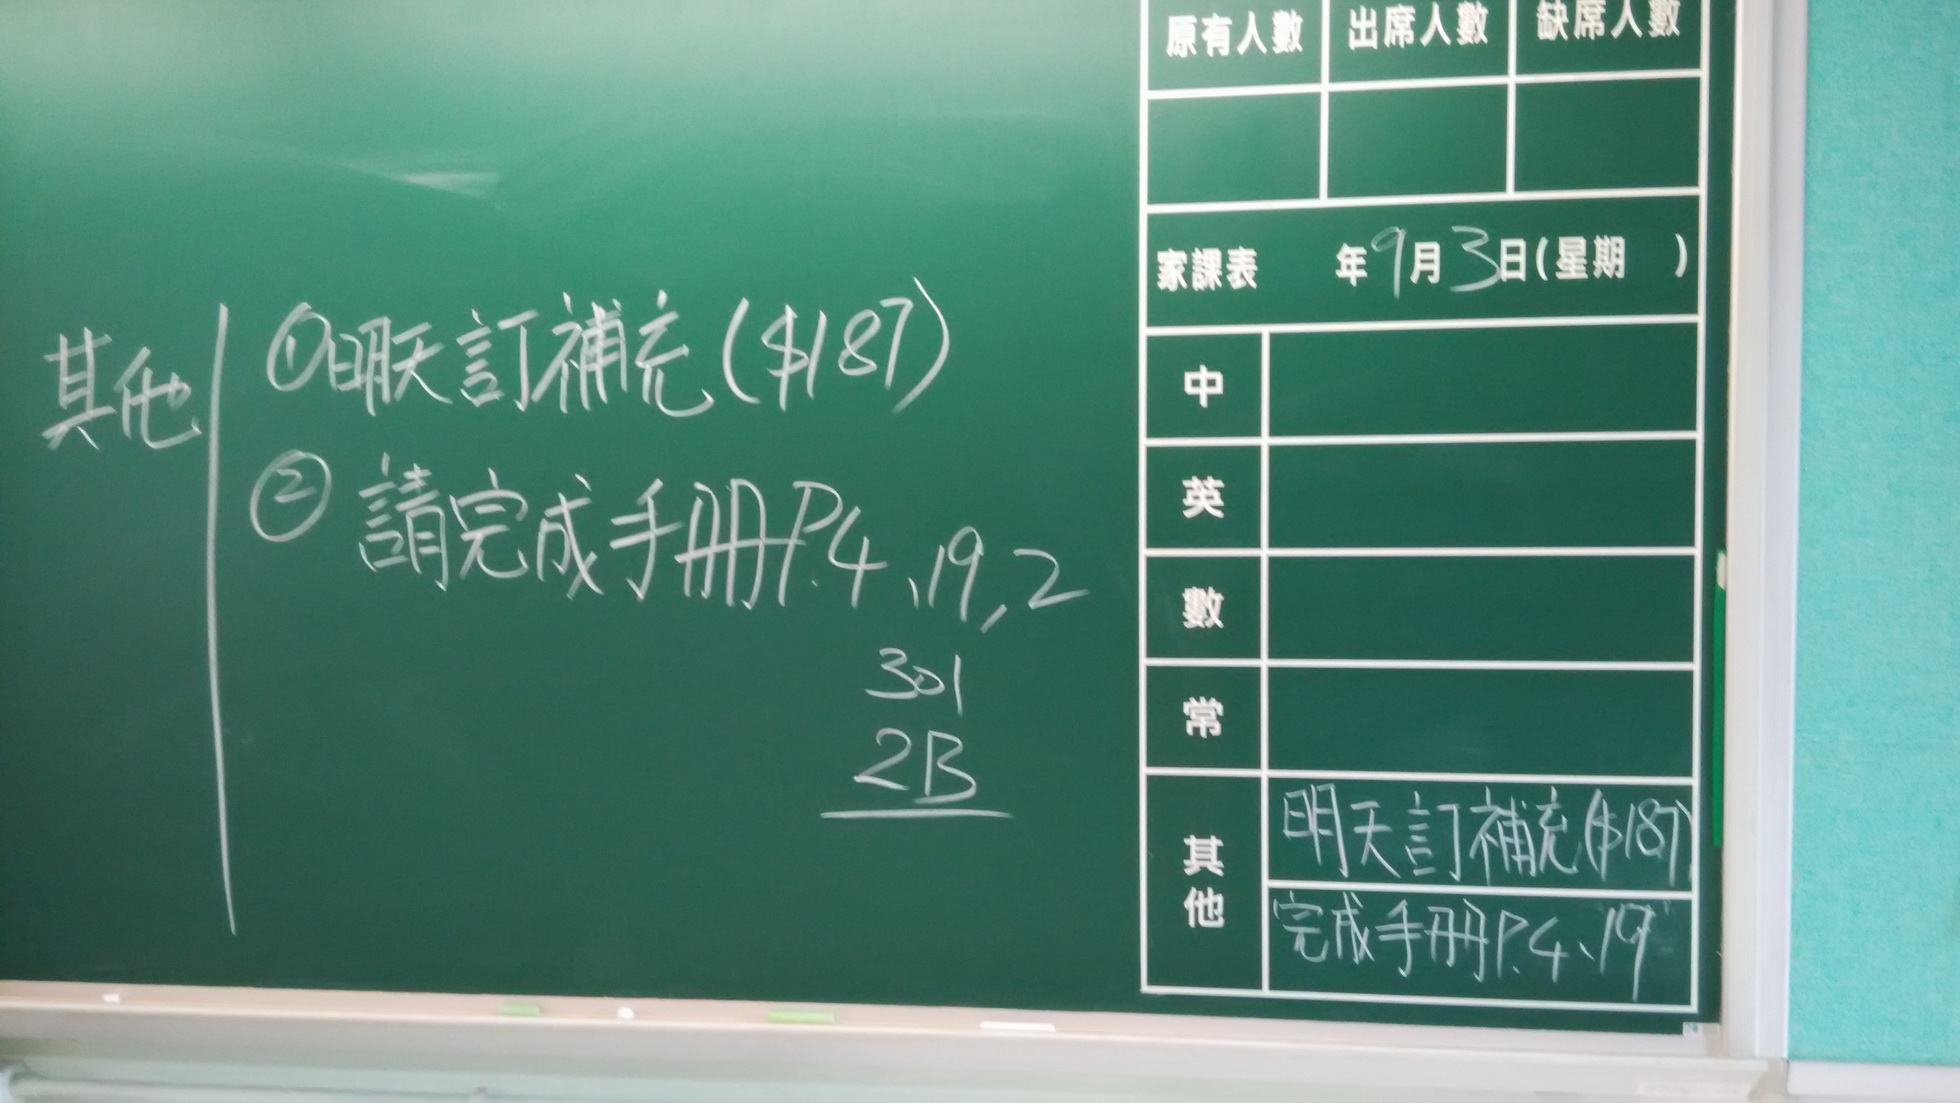 其他
①明天訂補充($187)
②請完成手冊P.4、19,2
301
2B
原有人數 出席人數 缺席人數
家課表 年9月3日(星期 )
中
英
數
常
其他
明天訂補充($187)
完成手冊P.4、19